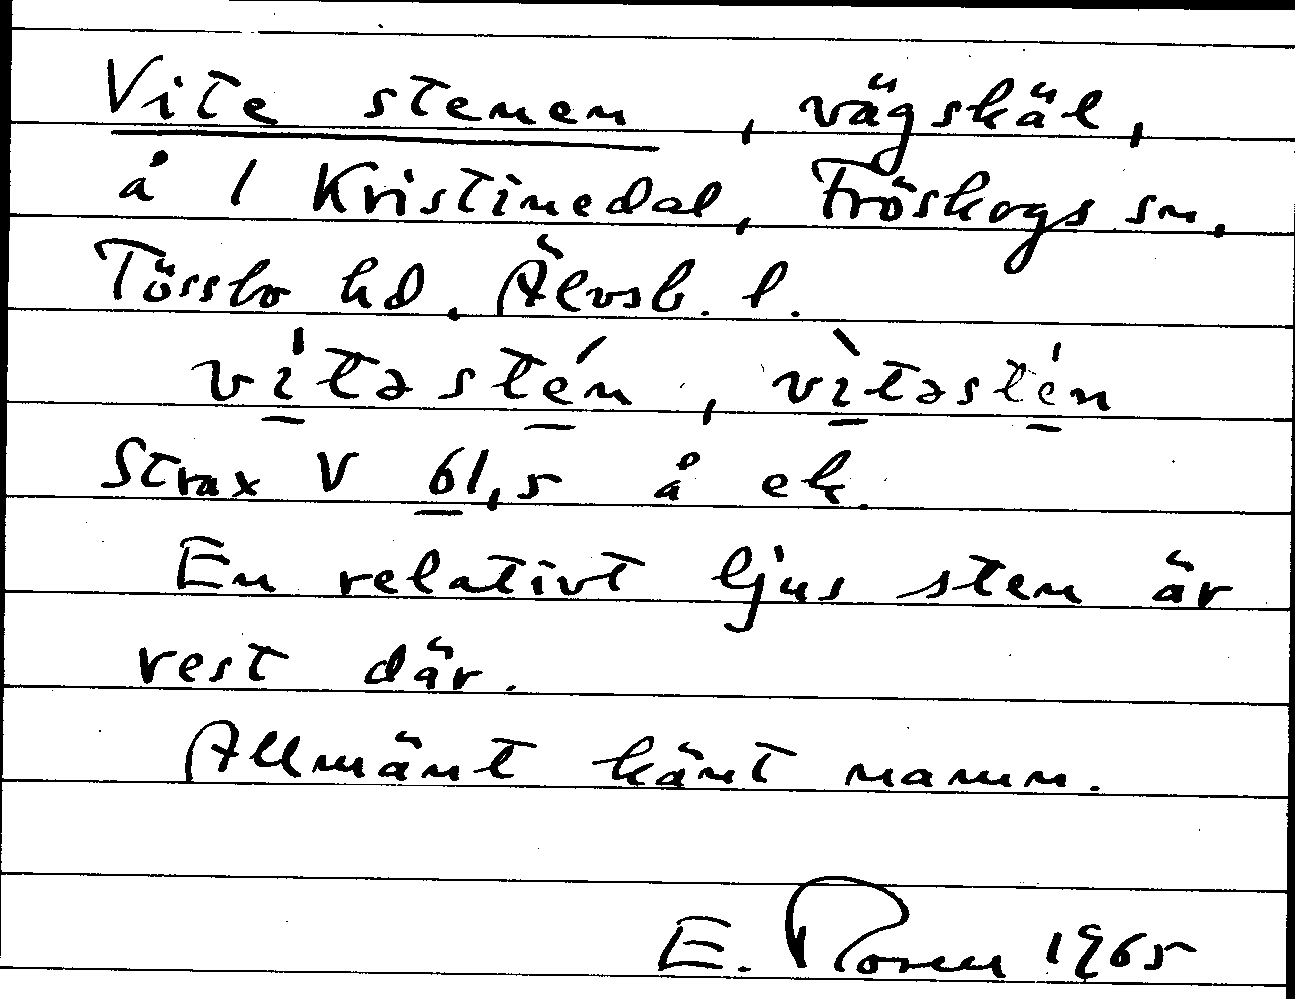 Vite stenen, vägskäl,
å 1 Kristinedal, Fröskogs sn.
Tössbo hd. Älvsb. l.
vi̱̍təsté̱n, vì̱təsté̱n
Strax V 61,5 å ek.
En relativt ljus sten är
rest där.
Allmänt känt namn.
E. Rosell 1965